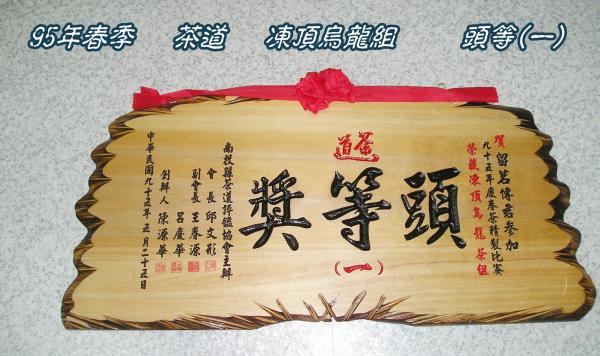 95年春季 茶道 凍頂烏龍組 頭等(一)
賀 留茗傳君參加
九十五年度春茶精製比賽
榮獲凍頂烏龍茶組
茶道
頭等獎
(一)
南投縣茶道評鑑協會主辦
會長 邱文彬
副會長 王春源
呂慶華
創辦人 陳源華
中華民國九十五年五月二十五日